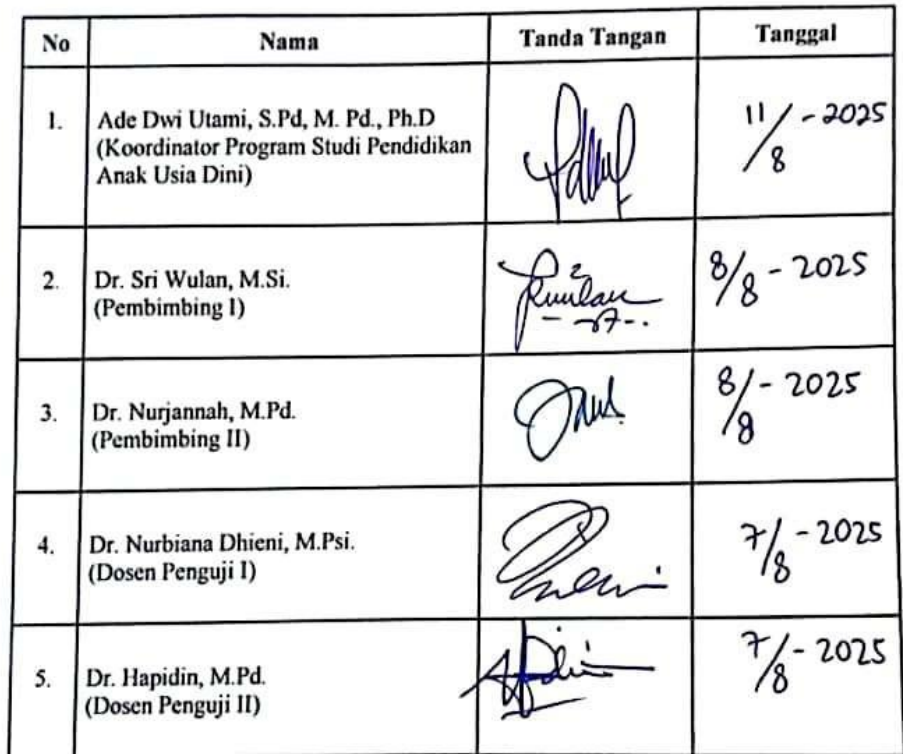 No Nama Tanda Tangan Tanggal
1. Ade Dwi Utami, S.Pd, M. Pd., Ph.D
(Koordinator Program Studi Pendidikan
Anak Usia Dini)
11/8 - 2025
2. Dr. Sri Wulan, M.Si.
(Pembimbing I)
8/8 - 2025
3. Dr. Nurjannah, M.Pd.
(Pembimbing II)
8/8 - 2025
4. Dr. Nurbiana Dhieni, M.Psi.
(Dosen Penguji I)
7/8 - 2025
5. Dr. Hapidin, M.Pd.
(Dosen Penguji II)
7/8 - 2025